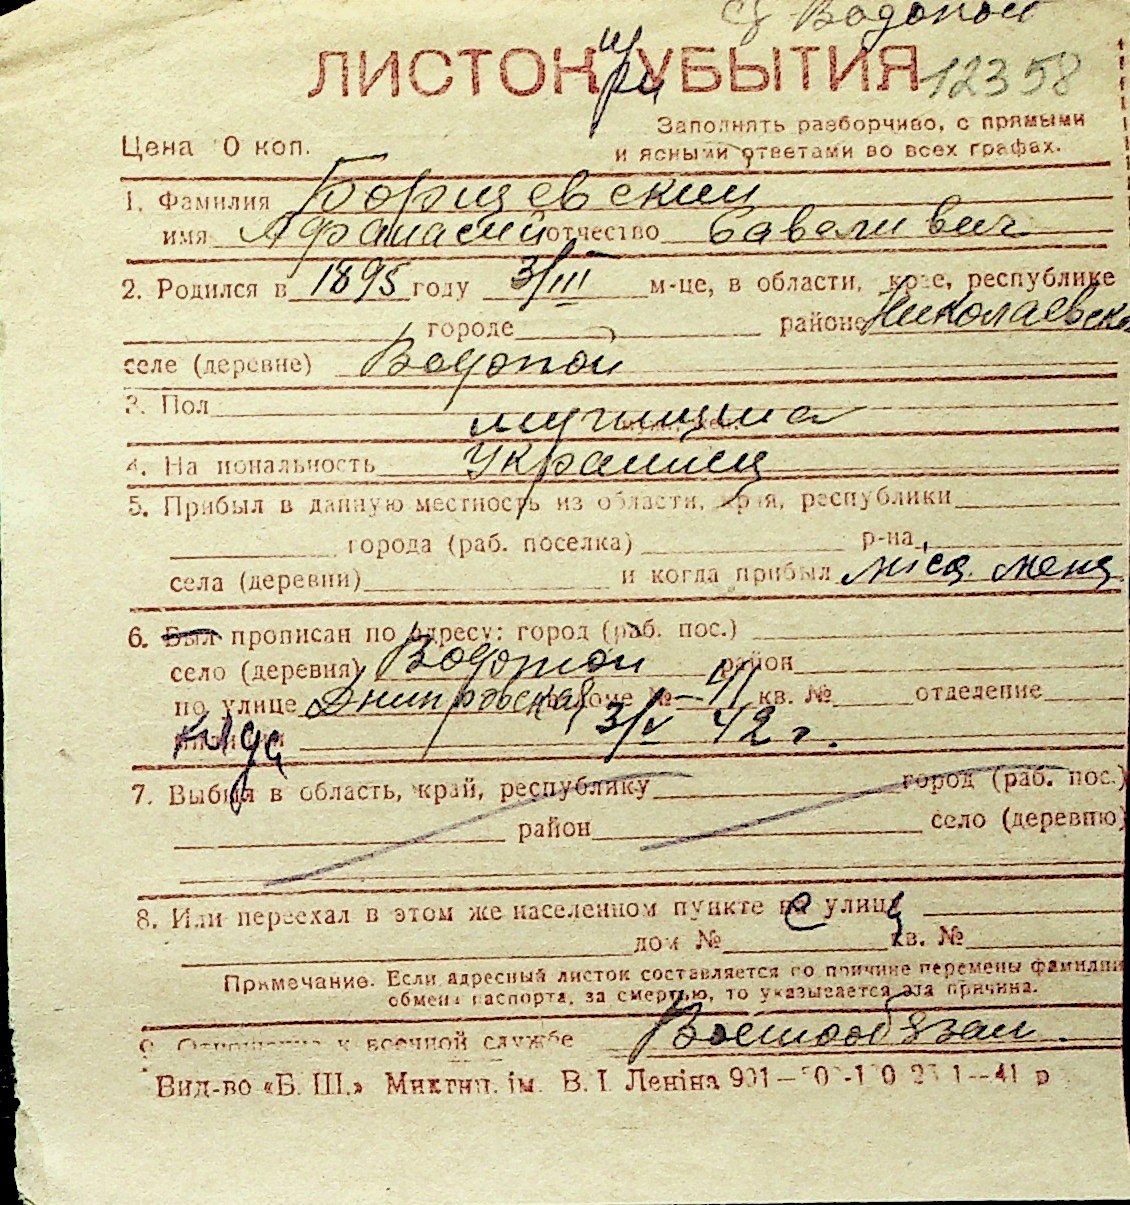 с Водопой
ЛИСТОК при УБЫТИЯ 12358
Заполнять разборчиво, с прямыми
Цена 10 коп. и ясными ответами во всех графах.
1. Фамилия Борщевский
имя Афанасий отчество Савели вич
2. Родился в 1895 году 3/III м-це, в области, крае, республике
городе районе Николаевско
селе (деревне) Водопой
3. Пол мужчина
4. На иональность Украинец
5. Прибыл в данную местность из области, края, республики
города (раб. поселка) р-на
села (деревни) и когда прибыл місц. жен
6. Был прописан по адресу: город (раб. пос.)
село (деревня) Водопой район
по улице Днипровская доме № 41 кв. № отделение
3/V 42 г.
7. Выбыл в область, край, республику город (раб. пос.)
район село (деревню)
8. Или переехал в этом же населенном пункте на улицу
дом № кв. №
Примечание. Если адресный листок составляется по причине перемены фамилии
обмена паспорта, за смертью, то указывается эта причина.
9. Отношение к военной службе Военнообязан.
Вид-во «Б. Ш.» Микгип. ім. В. І. Леніна